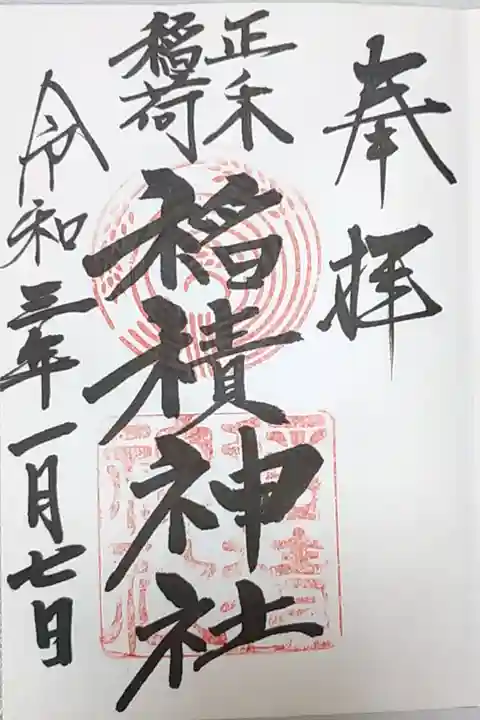 奉拝
正一木
稲荷
稲積神社
令和三年一月七日